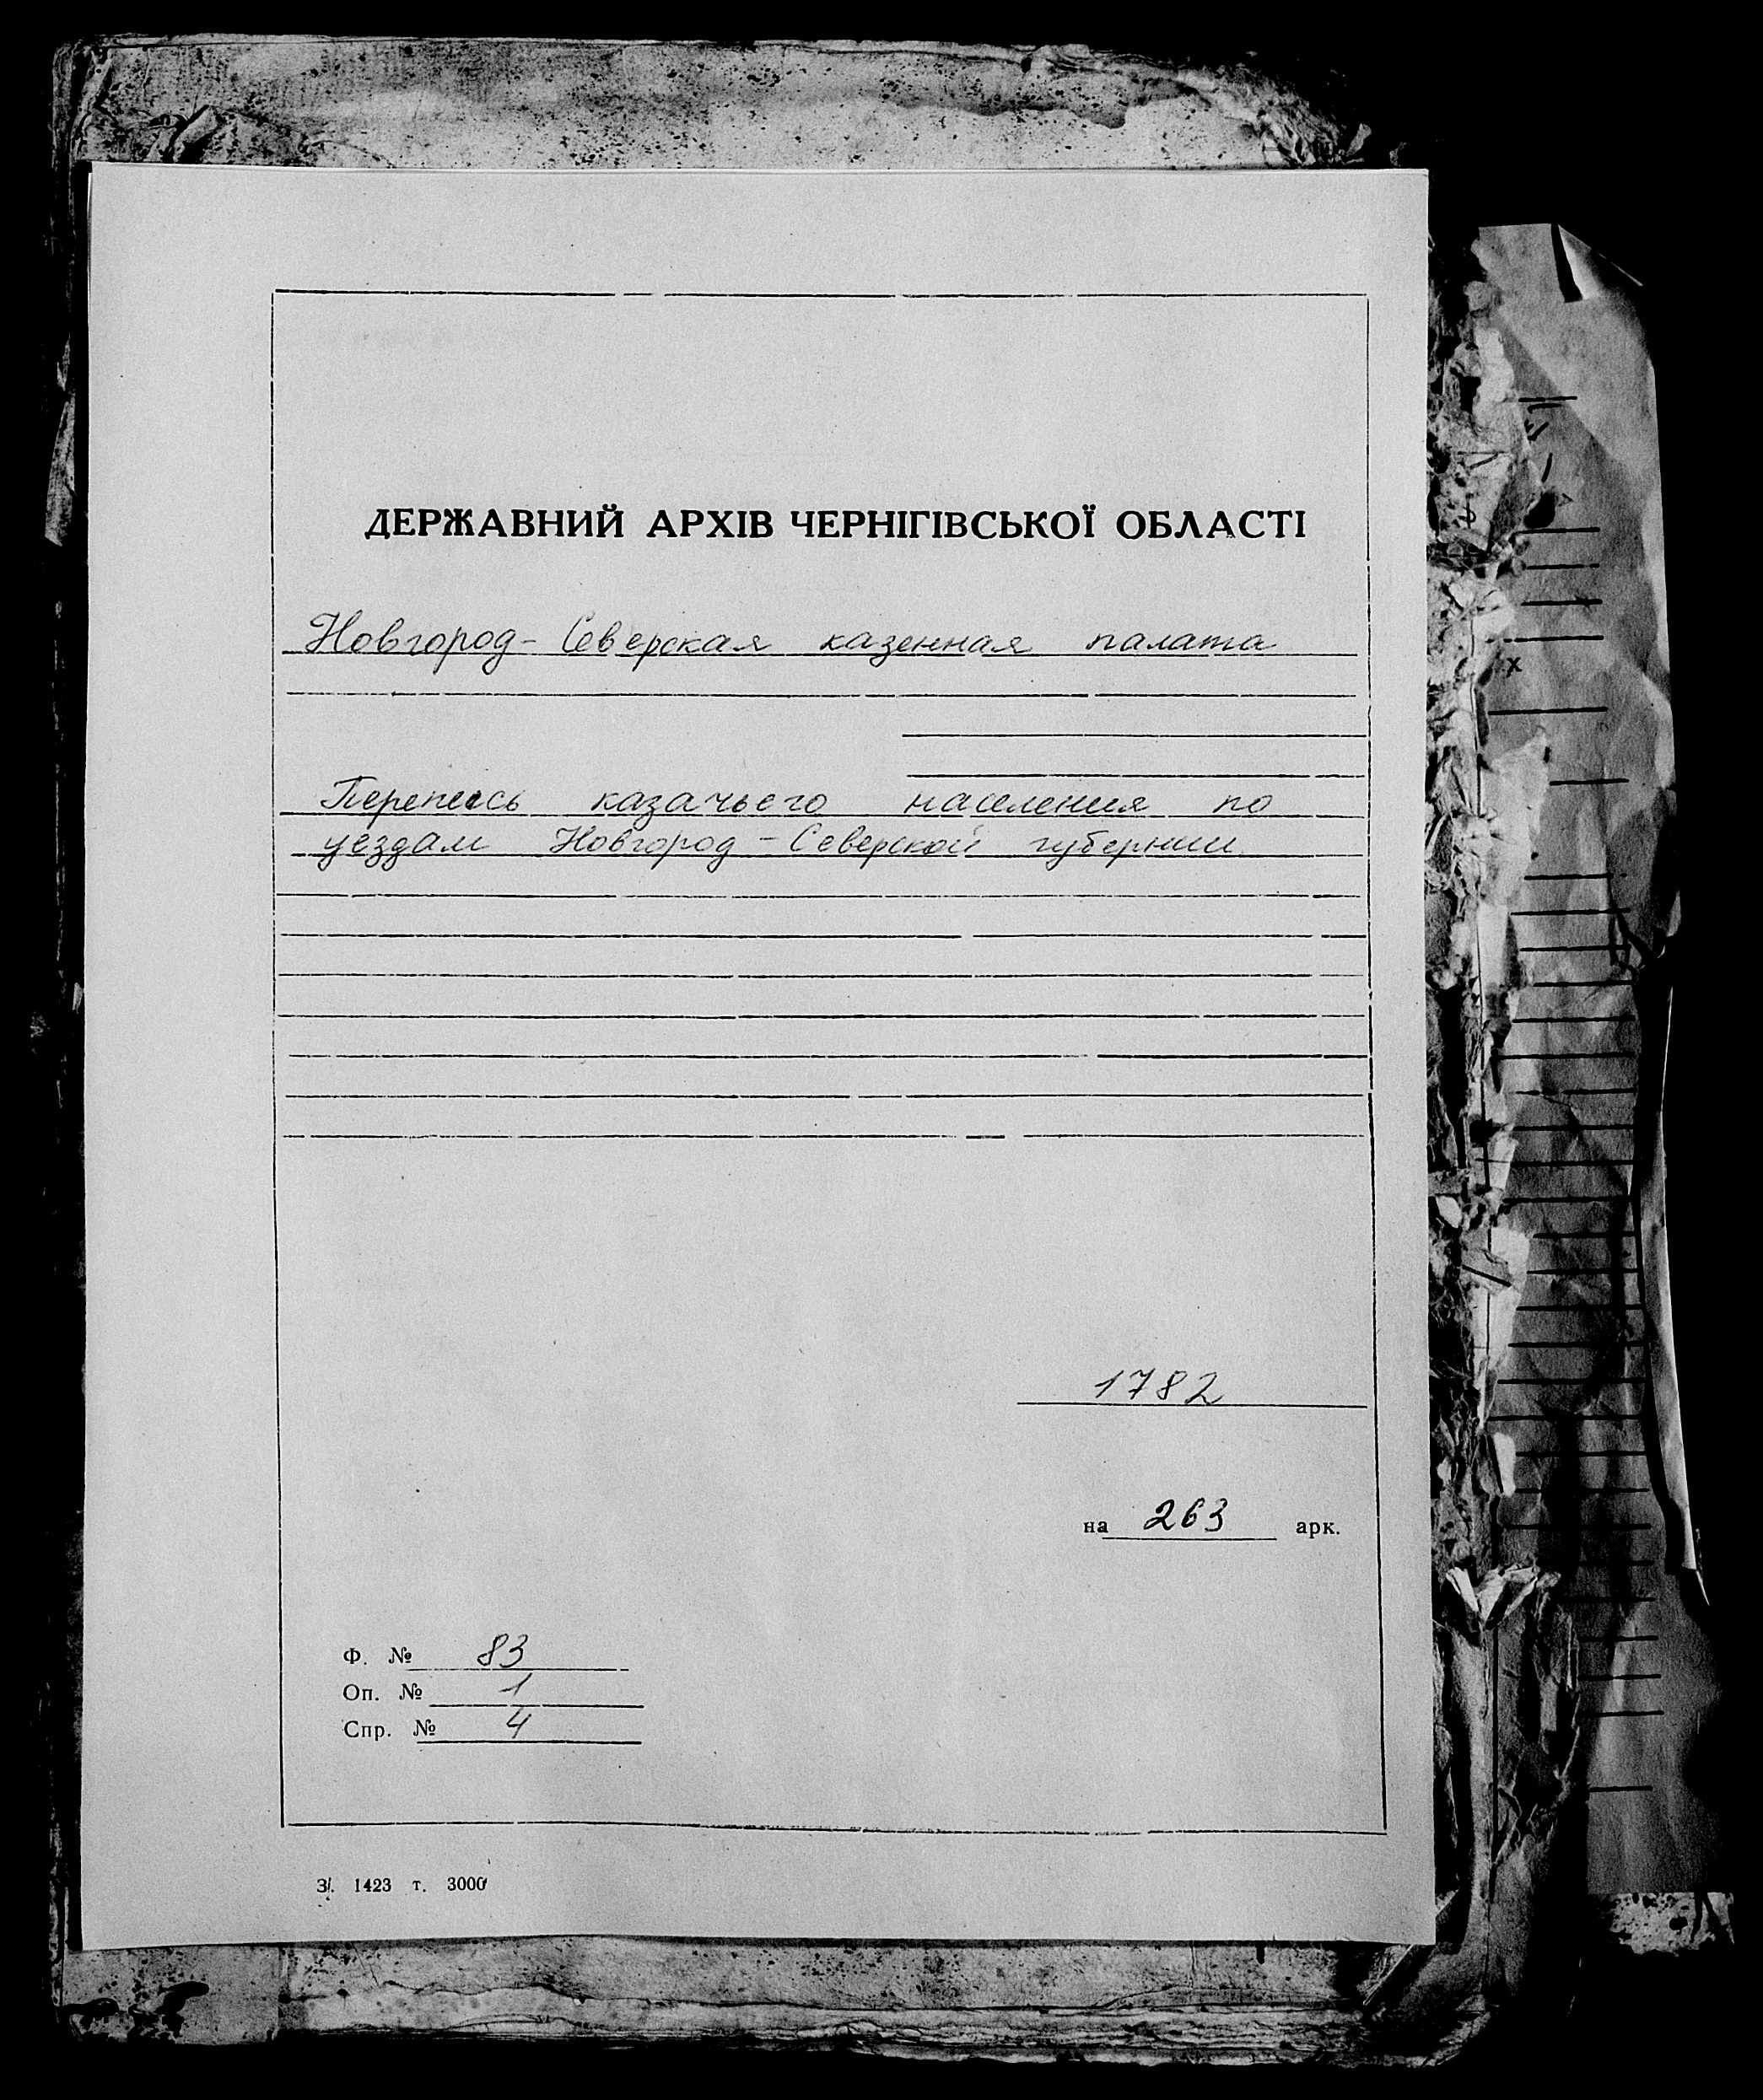 ДЕРЖАВНИЙ АРХІВ ЧЕРНІГІВСЬКОЇ ОБЛАСТІ
Новгород-Северская казенная палата
Перепись казачьего населения по
уездам Новгород-Северской губернии
1782
на 263 арк.
Ф. № 83
Оп. № 1
Спр. № 4
З. 1423 т. 3000